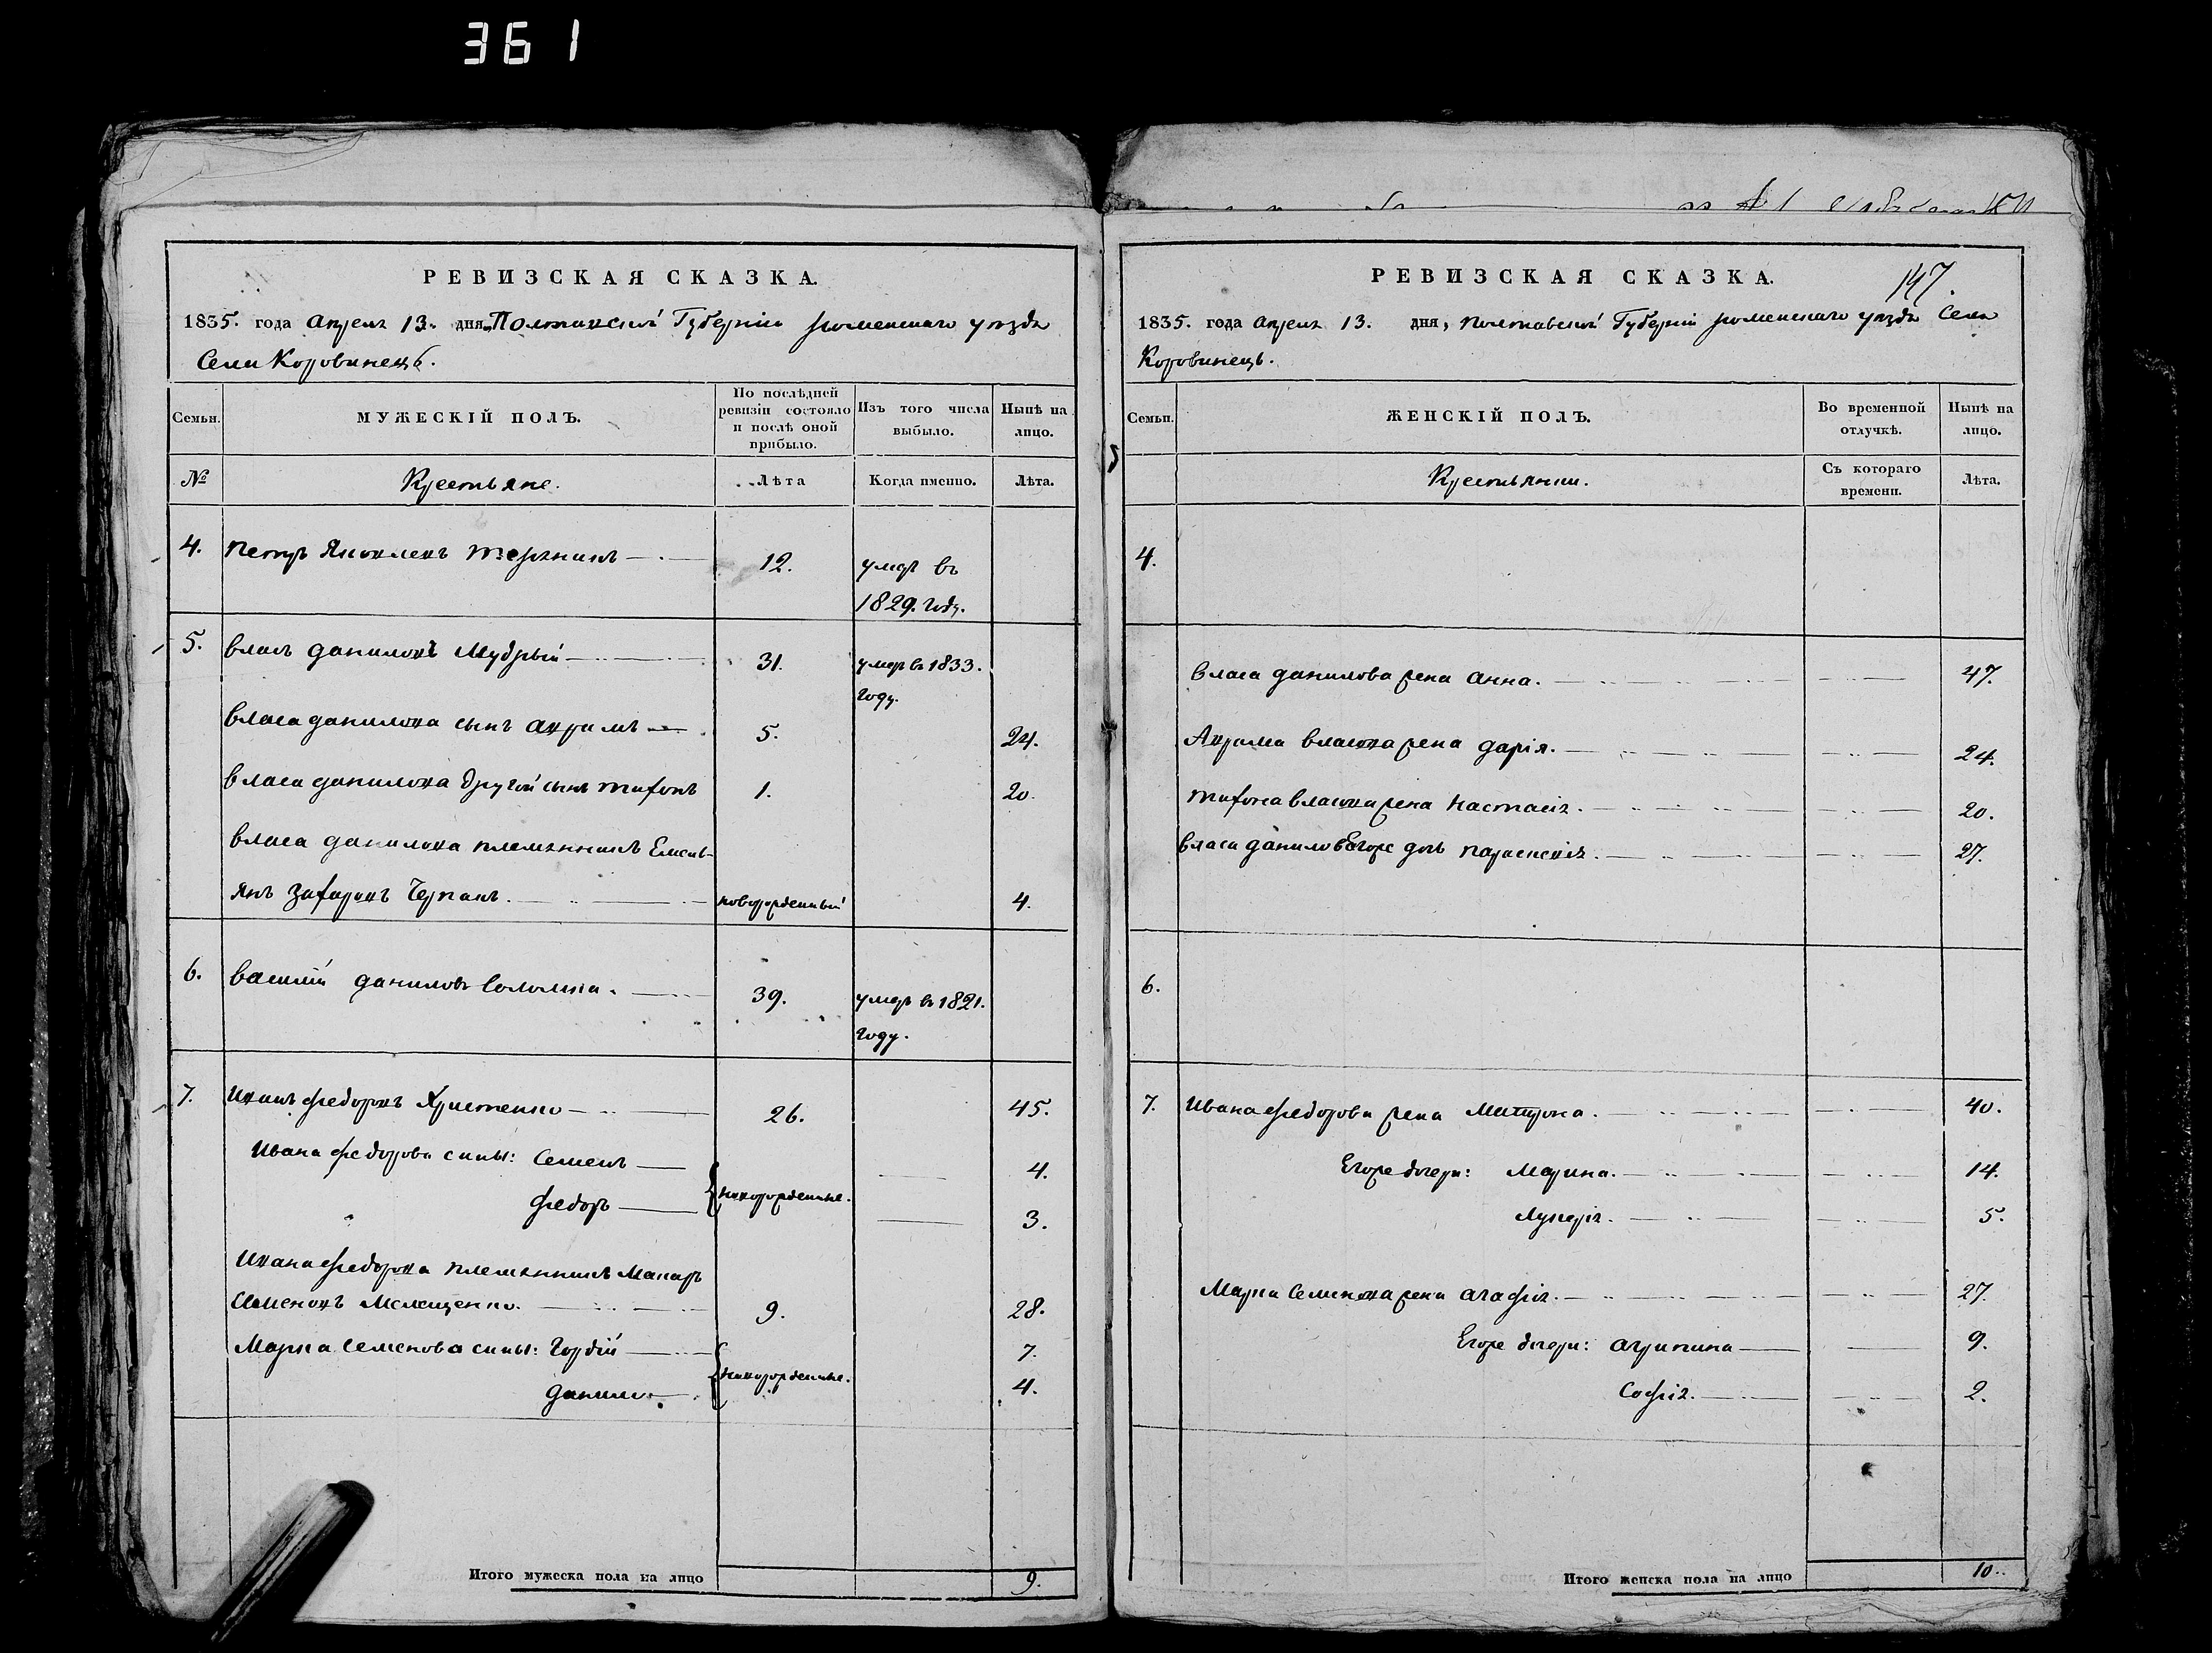 361
РЕВИЗСКАЯ СКАЗКА.
1835. года Апреля 13. дня, Полтавской Губернiи роменскаго уезда
Села Коровинецъ.
Семьи.
МУЖЕСКIЙ ПОЛЪ.
По послѣдней ревизiи состояло и послѣ оной прибыло.
Изъ того числа выбыло.
Нынѣ на лицо.
№
Крестьяне.
Лѣта
Когда именно.
Лѣта.
4. Петръ Яковлевъ Тережникъ 12. умре въ
1829. году.
5. Власъ Даниловъ Мудрый 31. умеръ въ 1833.
году.
Власа Данилова сынъ Аврамъ 5. 24.
Власа Данилова другой сынъ Тифонъ 1. 20.
Власа Данилова племянникъ Емель-
янъ Захаровъ Черпакъ. новорожденный 4.
6. Василiй Даниловъ Соломка. 39. умеръ въ 1821.
году.
7. Иванъ Федоровъ Христенко 26. 45.
Ивана Федорова сины: Семенъ 4.
Федоръ новорожденные. 3.
Ивана Федорова племянникъ Макаръ
Семеновъ 9. 28.
Марка Семенова сины: Гордiй 7.
Данило новорожденные. 4.
Итого мужеска пола на лицо 9.
147.
РЕВИЗСКАЯ СКАЗКА.
1835. года Апреля 13. дня, Полтавской Губернiи роменскаго уезда Села
Коровинецъ.
Семьи.
ЖЕНСКIЙ ПОЛЪ.
Во временной отлучкѣ.
Нынѣ на лицо.
Крестьянки.
Съ котораго времени.
Лѣта.
4.
Власа Данилова жена Анна. 47.
Аврама Власова жена Дарiя. 24.
Тифона Власова жена Настасiя. 20.
Власа Данилов Егоже дочь Параскевiя. 27.
6.
7. Ивана Федорова жена Митрона. 40.
Егоже дочери: Марина. 14.
Лукерiя. 5.
Марка Семенова жена Агафiя. 27.
Егоже дочери: Агрипина 9.
Софiя. 2.
Итого женска пола на лицо 10.